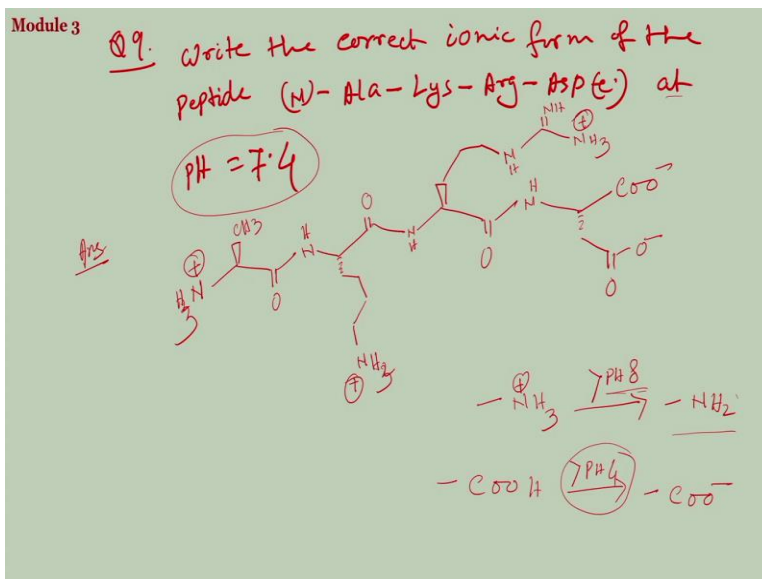 Module 3
Q9. Write the correct ionic form of the
peptide (N)-Ala-Lys-Arg-Asp(c) at
pH = 7.4
Ans
NH
⊕
NH3
N
H
H
N
COO⁻
CH3
O
H
N
N
H
O
O⁻
O
⊕
H3N
O
NH3
⊕
-⊕NH3 >pH 8 → -NH2
-COOH >pH 4 → -COO⁻